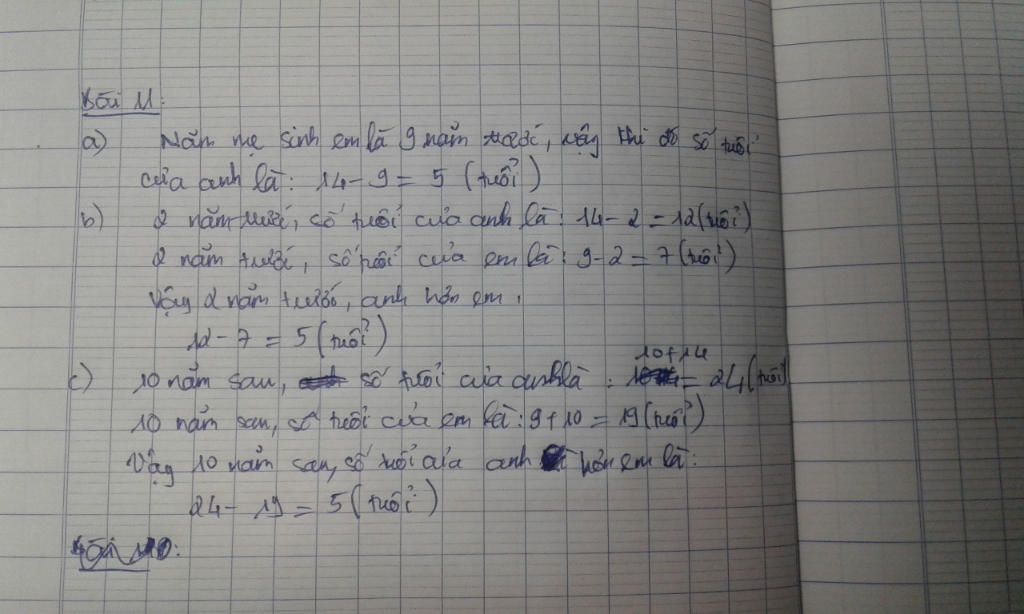 Bài 11:
a) Năm mẹ sinh em là 9 năm trước, vậy khi đó số tuổi
của anh là: 14 - 9 = 5 (tuổi)
b) 2 năm trước, số tuổi của anh là: 14 - 2 = 12 (tuổi)
2 năm trước, số tuổi của em là: 9 - 2 = 7 (tuổi)
Vậy 2 năm trước, anh hơn em:
12 - 7 = 5 (tuổi)
c) 10 năm sau, số tuổi của anh là: 10 + 14 = 24 (tuổi)
10 năm sau, số tuổi của em là: 9 + 10 = 19 (tuổi)
Vậy 10 năm sau, số tuổi của anh hơn em là:
24 - 19 = 5 (tuổi)